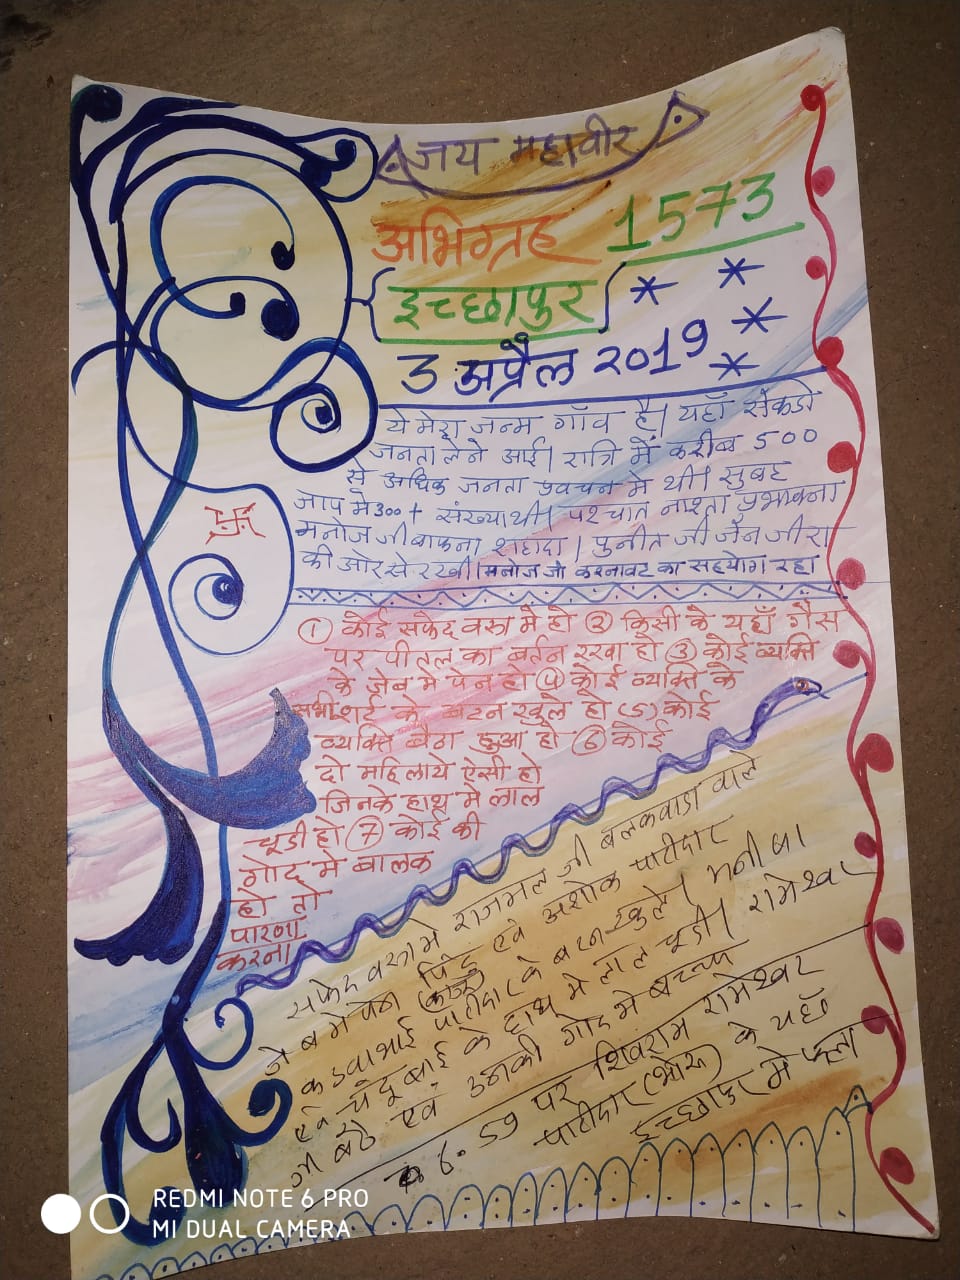 जय महावीर
अभिग्रह 1573
इच्छापुर
3 अप्रैल २०19
ये मेरा जन्म गाँव है। यहाँ सेकडो
जनता लेने आई। रात्रि में करीब 500
से अधिक जनता प्रवचन मे थी। सुबह
जाप मे 300+ संख्या थी। पश्चात नाश्ता प्रभावना
मनोज जी बाफना शहादा। पुनीत जी जैन जीरा
की ओर से रखी। मनोज जी करनावट का सहयोग रहा
① कोई सफेद वस्त्र मे हो ② किसी के यहाँ गैस
पर पीतल का बर्तन रखा हो ③ कोई व्यक्ति
के जेब मे पेन हो ④ कोई व्यक्ति के
सभी शर्ट के बटन खुले हो (5) कोई
व्यक्ति बैठा हुआ हो ⑥ कोई
दो महिलाये ऐसी हो
जिनके हाथ मे लाल
चूडी हो ⑦ कोई की
गोद मे बालक
हो तो
पारणा
करना
सफेद वस्त्र मे राजमल जी बलकवाडा वाले
जेब मे पेन पिंटु एवं अशोक पाटीदार
कडवाभाई पाटीदार के बटन खुले। मनीषा
एवं चंदुबाई के हाथ मे लाल चूडी। रामेश्वर
जी बैठे एवं उनकी गोद मे बच्चा
६. 59 पर शिवराम रामेश्वर
पाटीदार के यहाँ
इच्छापुर मे फला
REDMI NOTE 6 PRO
MI DUAL CAMERA